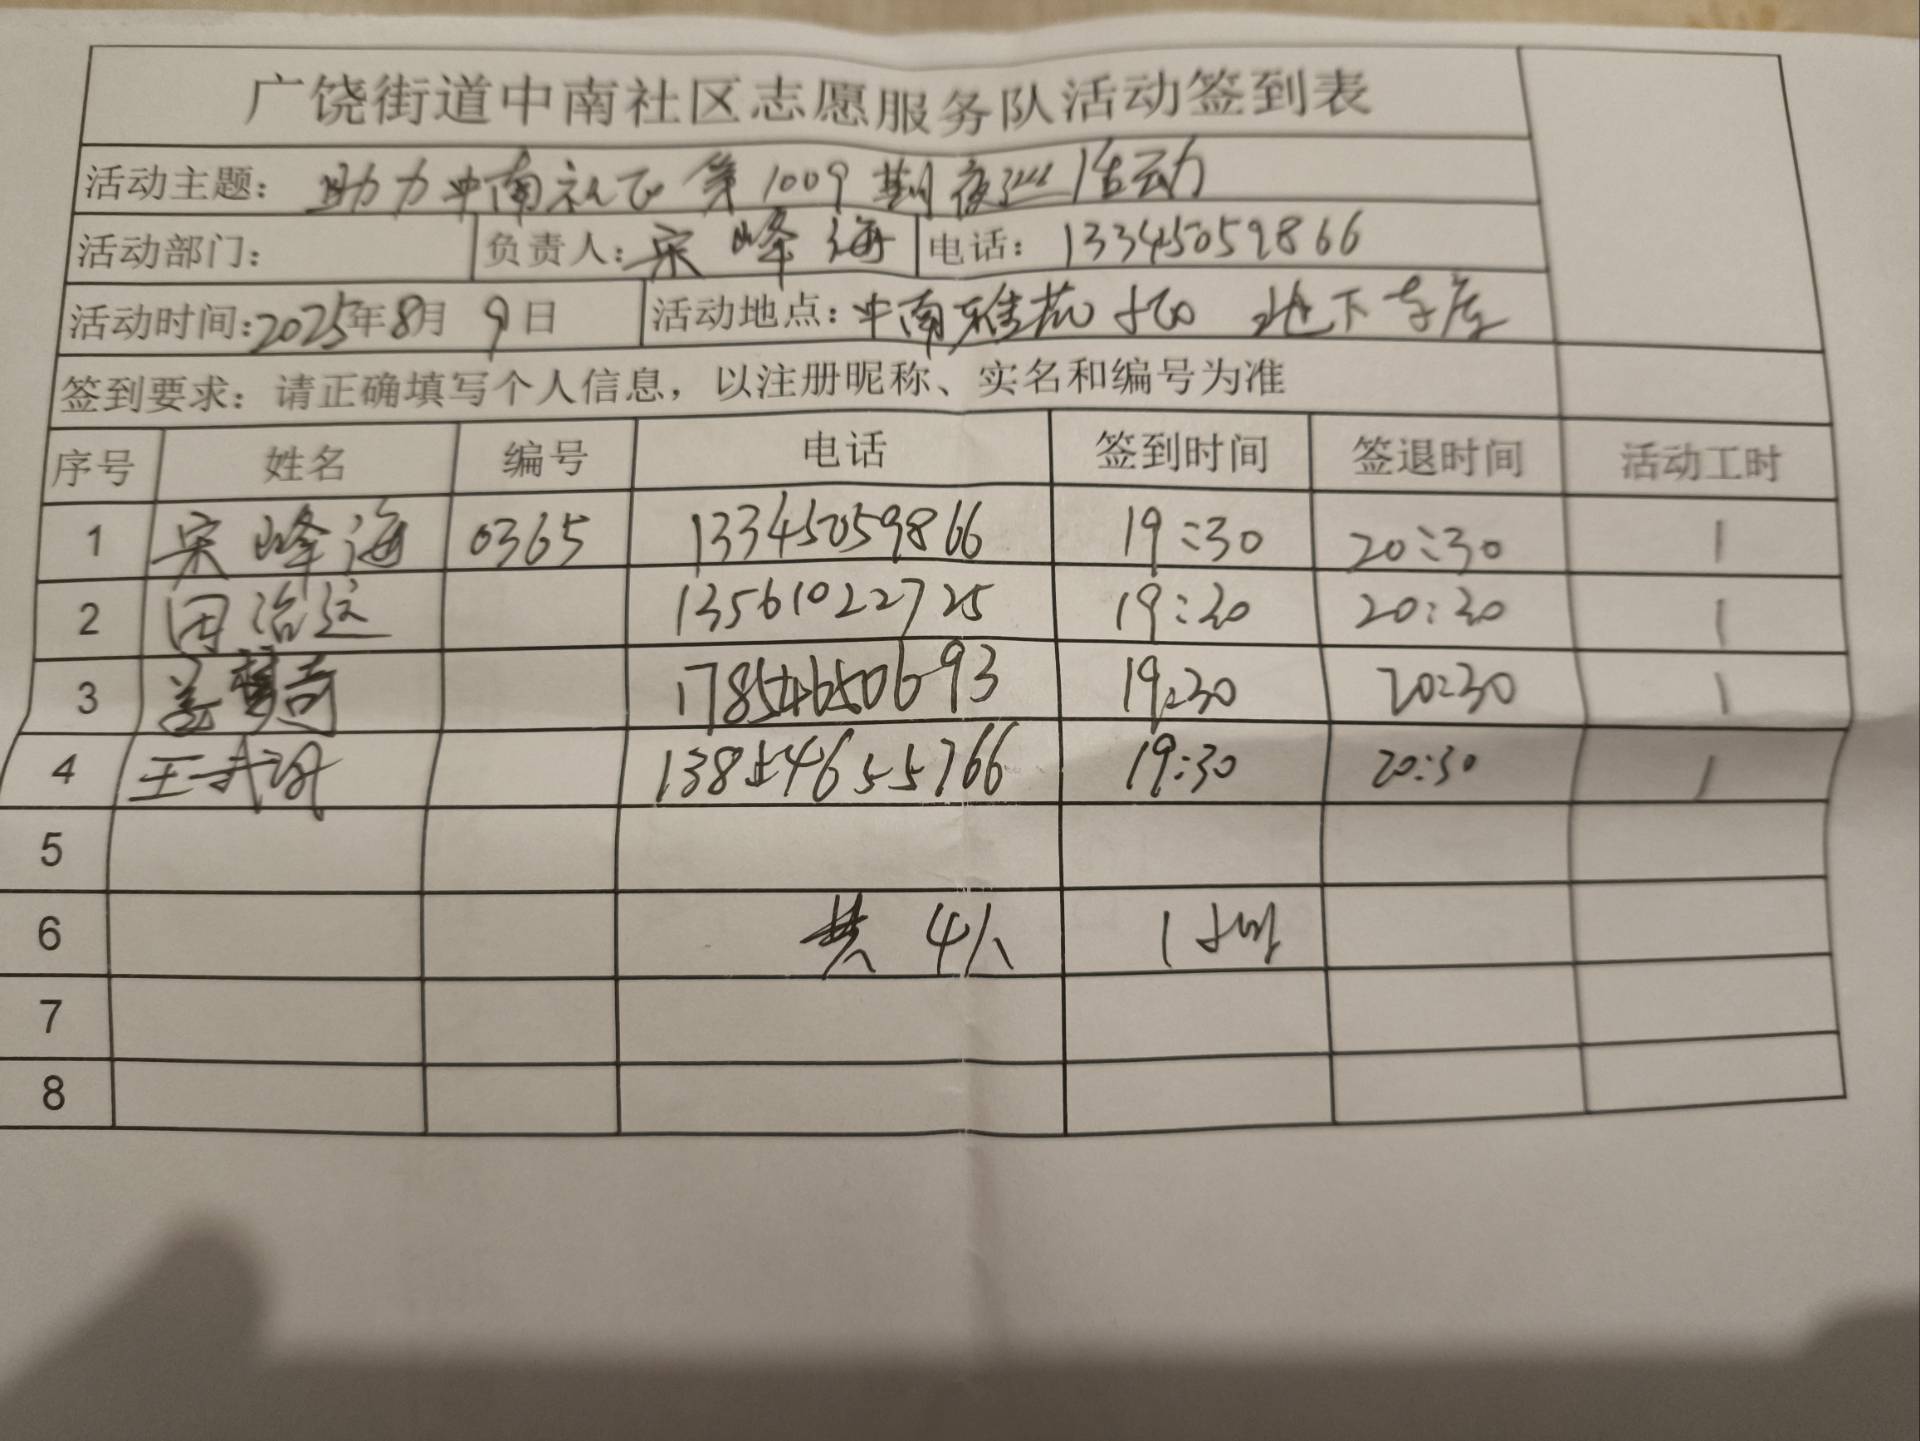 广饶街道中南社区志愿服务队活动签到表
活动主题：助力中南社区第1009期夜巡活动
活动部门： 负责人：宋峰海 电话：13345059866
活动时间：2025年8月9日 活动地点：中南雅苑小区 地下车库
签到要求：请正确填写个人信息，以注册昵称、实名和编号为准
序号 姓名 编号 电话 签到时间 签退时间 活动工时
1 宋峰海 0365 13345059866 19:30 20:30 1
2 13561022725 19:30 20:30 1
3 17854650693 19:30 20:30 1
4 13854655766 19:30 20:30 1
5
6 共 4人 1小时
7
8